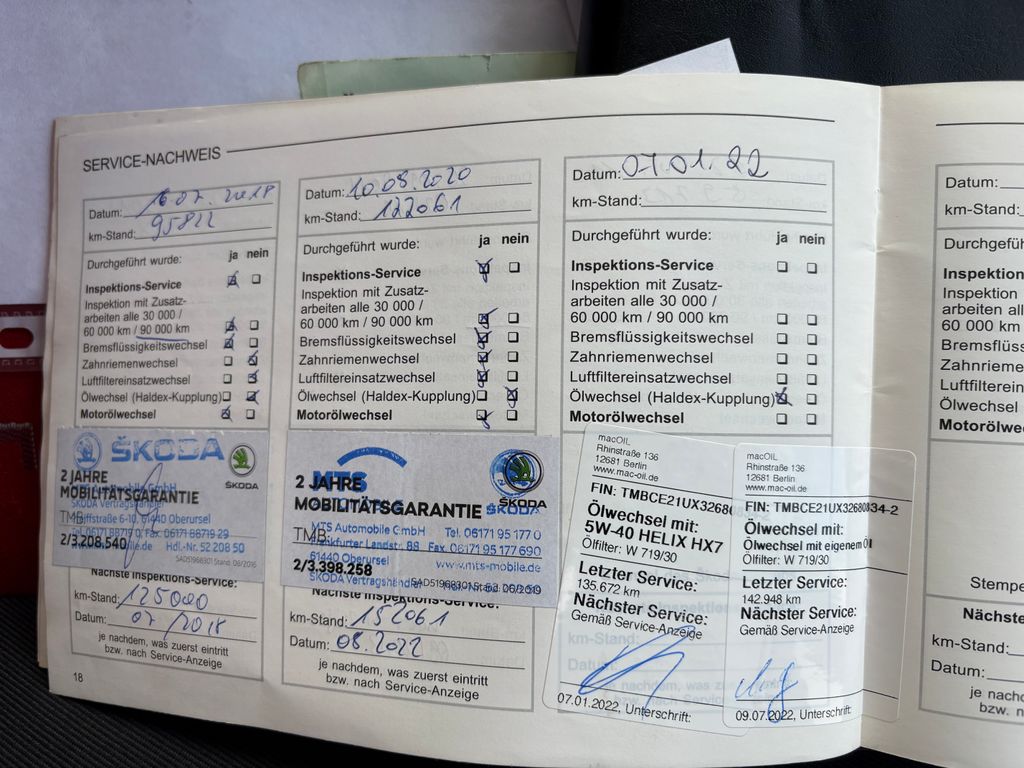 SERVICE-NACHWEIS
Datum: 16.07.2018
km-Stand: 95822
Durchgeführt wurde: ja nein
Inspektions-Service
Inspektion mit Zusatz-
arbeiten alle 30 000 /
60 000 km / 90 000 km
Bremsflüssigkeitswechsel
Zahnriemenwechsel
Luftfiltereinsatzwechsel
Ölwechsel (Haldex-Kupplung)
Motorölwechsel
ŠKODA
ŠKODA
2 JAHRE
MOBILITÄTSGARANTIE
ŠKODA Vertragshändler
61440 Oberursel
TMB
2/3.208.540
Hdl.-Nr. 52 208 50
SAD51968301 Stand: 08/2016
Nächste Inspektions-Service:
km-Stand: 125000
Datum: 07/2018
je nachdem, was zuerst eintritt
bzw. nach Service-Anzeige
18
Datum: 10.08.2020
km-Stand: 122061
Durchgeführt wurde: ja nein
Inspektions-Service
Inspektion mit Zusatz-
arbeiten alle 30 000 /
60 000 km / 90 000 km
Bremsflüssigkeitswechsel
Zahnriemenwechsel
Luftfiltereinsatzwechsel
Ölwechsel (Haldex-Kupplung)
Motorölwechsel
MTS
2 JAHRE
MOBILITÄTSGARANTIE
ŠKODA
ŠKODA
MTS Automobile GmbH Tel. 06171 95 177 0
TMB
Frankfurter Landstr. 88 Fax. 06171 95 177 690
61440 Oberursel www.mts-mobile.de
2/3.398.258
ŠKODA Vertragshändler
Nächste Inspektions-Service:
km-Stand: 152061
Datum: 08.2022
je nachdem, was zuerst eintritt
bzw. nach Service-Anzeige
Datum: 07.01.22
km-Stand:
Durchgeführt wurde: ja nein
Inspektions-Service
Inspektion mit Zusatz-
arbeiten alle 30 000 /
60 000 km / 90 000 km
Bremsflüssigkeitswechsel
Zahnriemenwechsel
Luftfiltereinsatzwechsel
Ölwechsel (Haldex-Kupplung)
Motorölwechsel
macOIL
Rhinstraße 136
12681 Berlin
www.mac-oil.de
FIN: TMBCE21UX32680
Ölwechsel mit:
5W-40 HELIX HX7
Ölfilter: W 719/30
Letzter Service:
135.672 km
Nächster Service:
Gemäß Service-Anzeige
07.01.2022, Unterschrift:
macOIL
Rhinstraße 136
12681 Berlin
www.mac-oil.de
FIN: TMBCE21UX32680834-2
Ölwechsel mit:
Ölwechsel mit eigenem Öl
Ölfilter: W 719/30
Letzter Service:
142.948 km
Nächster Service:
Gemäß Service-Anzeige
09.07.2022, Unterschrift:
km-Stand:
Datum:
Datum:
km-Stand:
Durchgeführ
Inspektion
Inspektion
arbeiten all
60 000 km
Bremsflüss
Zahnrieme
Luftfilterein
Ölwechsel
Motorölwe
Stempe
Nächste
km-Stand:
Datum:
je nach
bzw. n